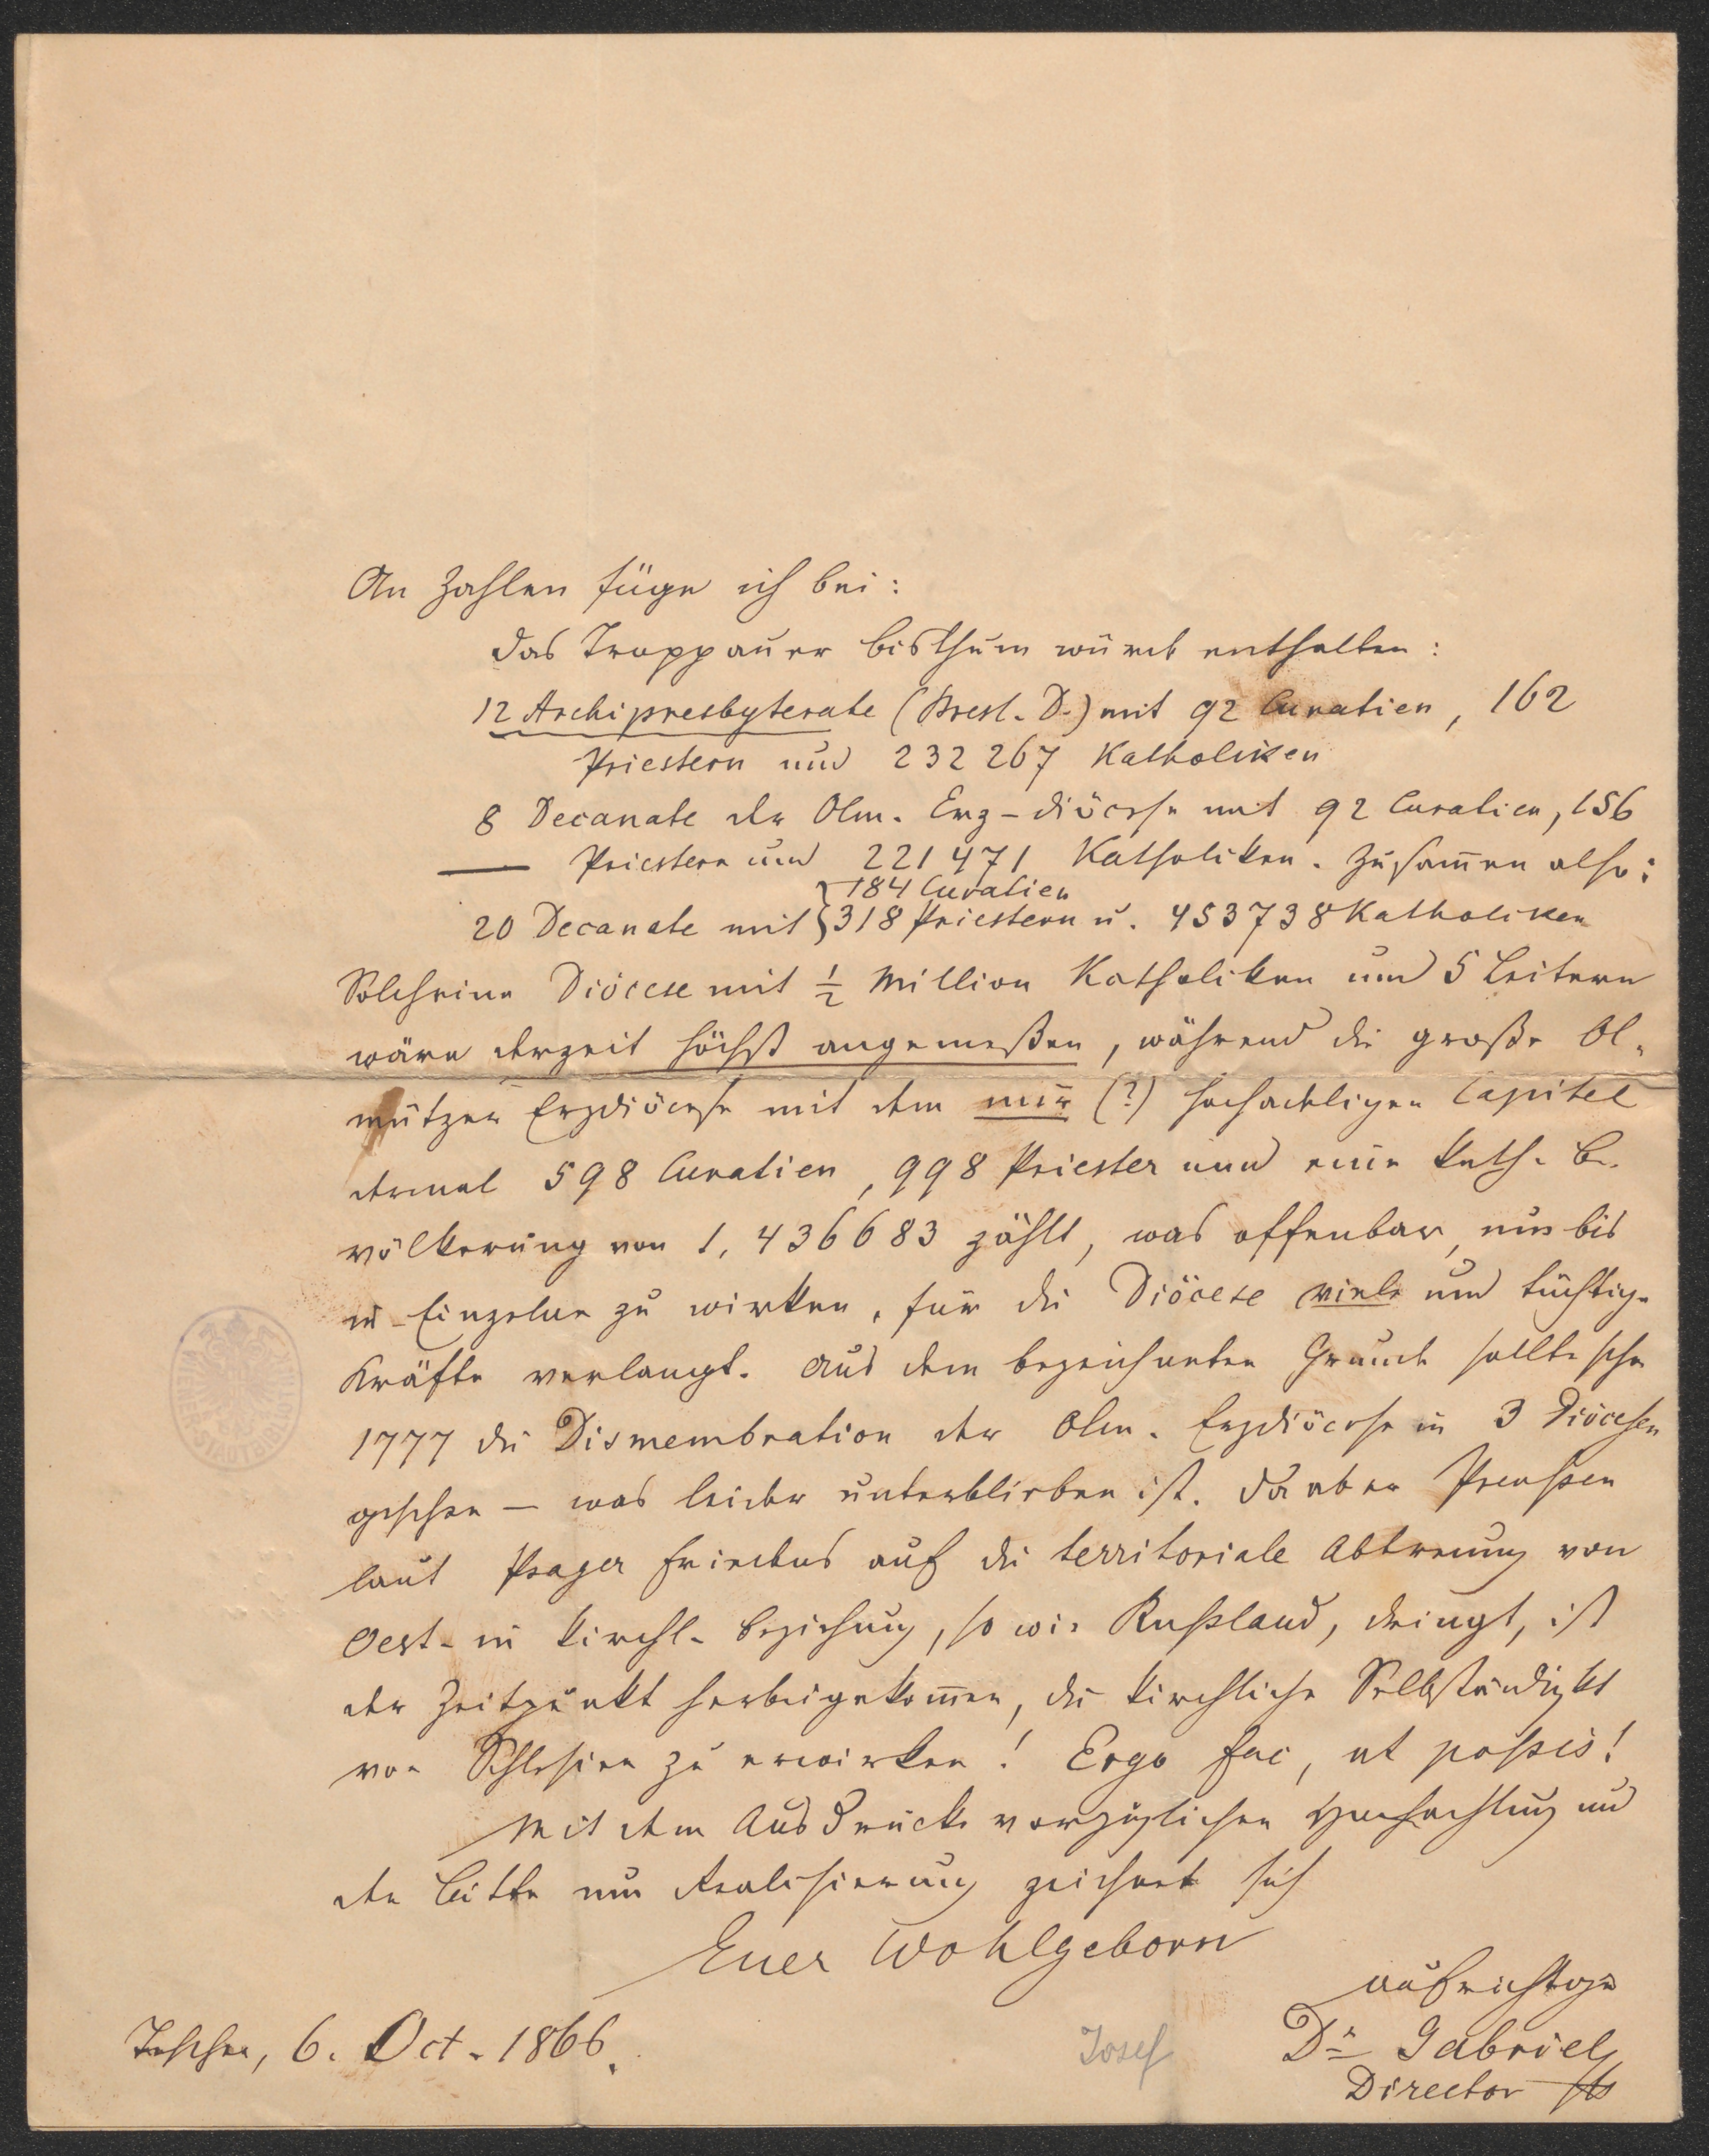 An Zahlen füge ich bei:
das Troppauer Bisthum würde enthalten:
12 Archipresbyterate (Bresl. D.) mit 92 Curatien, 162
Priestern und 232267 Katholiken
8 Decanate der Olm. Erz-diöcese mit 92 Curatien, 156
Priestern und 221471 Katholiken. Zusam̅en also:
184 Curatien
20 Decanate mit 318 Priestern u. 453738 Katholiken
Solch eine Diöcese mit ½ Million Katholiken und 5 Leitern
wäre derzeit höchst angemeßen, während die große Ol-
mützer Erzdiöcese mit dem nur (?) hochadeligen Capitel
dermal 598 Curatien, 998 Priester und eine kath. Be-
völkerung von 1,436683 zählt, was offenbar, um bis
in Einzelne zu wirken, für die Diöcese viele und tüchtige
Kräfte verlangt. Aus dem bezeichneten Grunde sollte schon
1777 die Dismembration der Olm. Erzdiöcese in 3 Diöcesen
geschehen — was leider unterblieben ist. Da aber Preußen
laut Prager Friedens auf die territoriale Abtrenung von
Oest. in kirchl. Beziehung, so wie Rußland, dringt, ist
der Zeitpunkt herbeigekom̅en, die kirchliche Selbständigkt
von Schlesien zu erwirken! Ergo fac, ut poßis!
Mit dem Ausdrucke vorzüglicher Hochachtung und
der Bitte um Realisierung zeichnet sich
Euer Wohlgeborn
aufrichtiger
Teschen, 6. Oct. 1866.
Josef
Dr Gabriel
Director